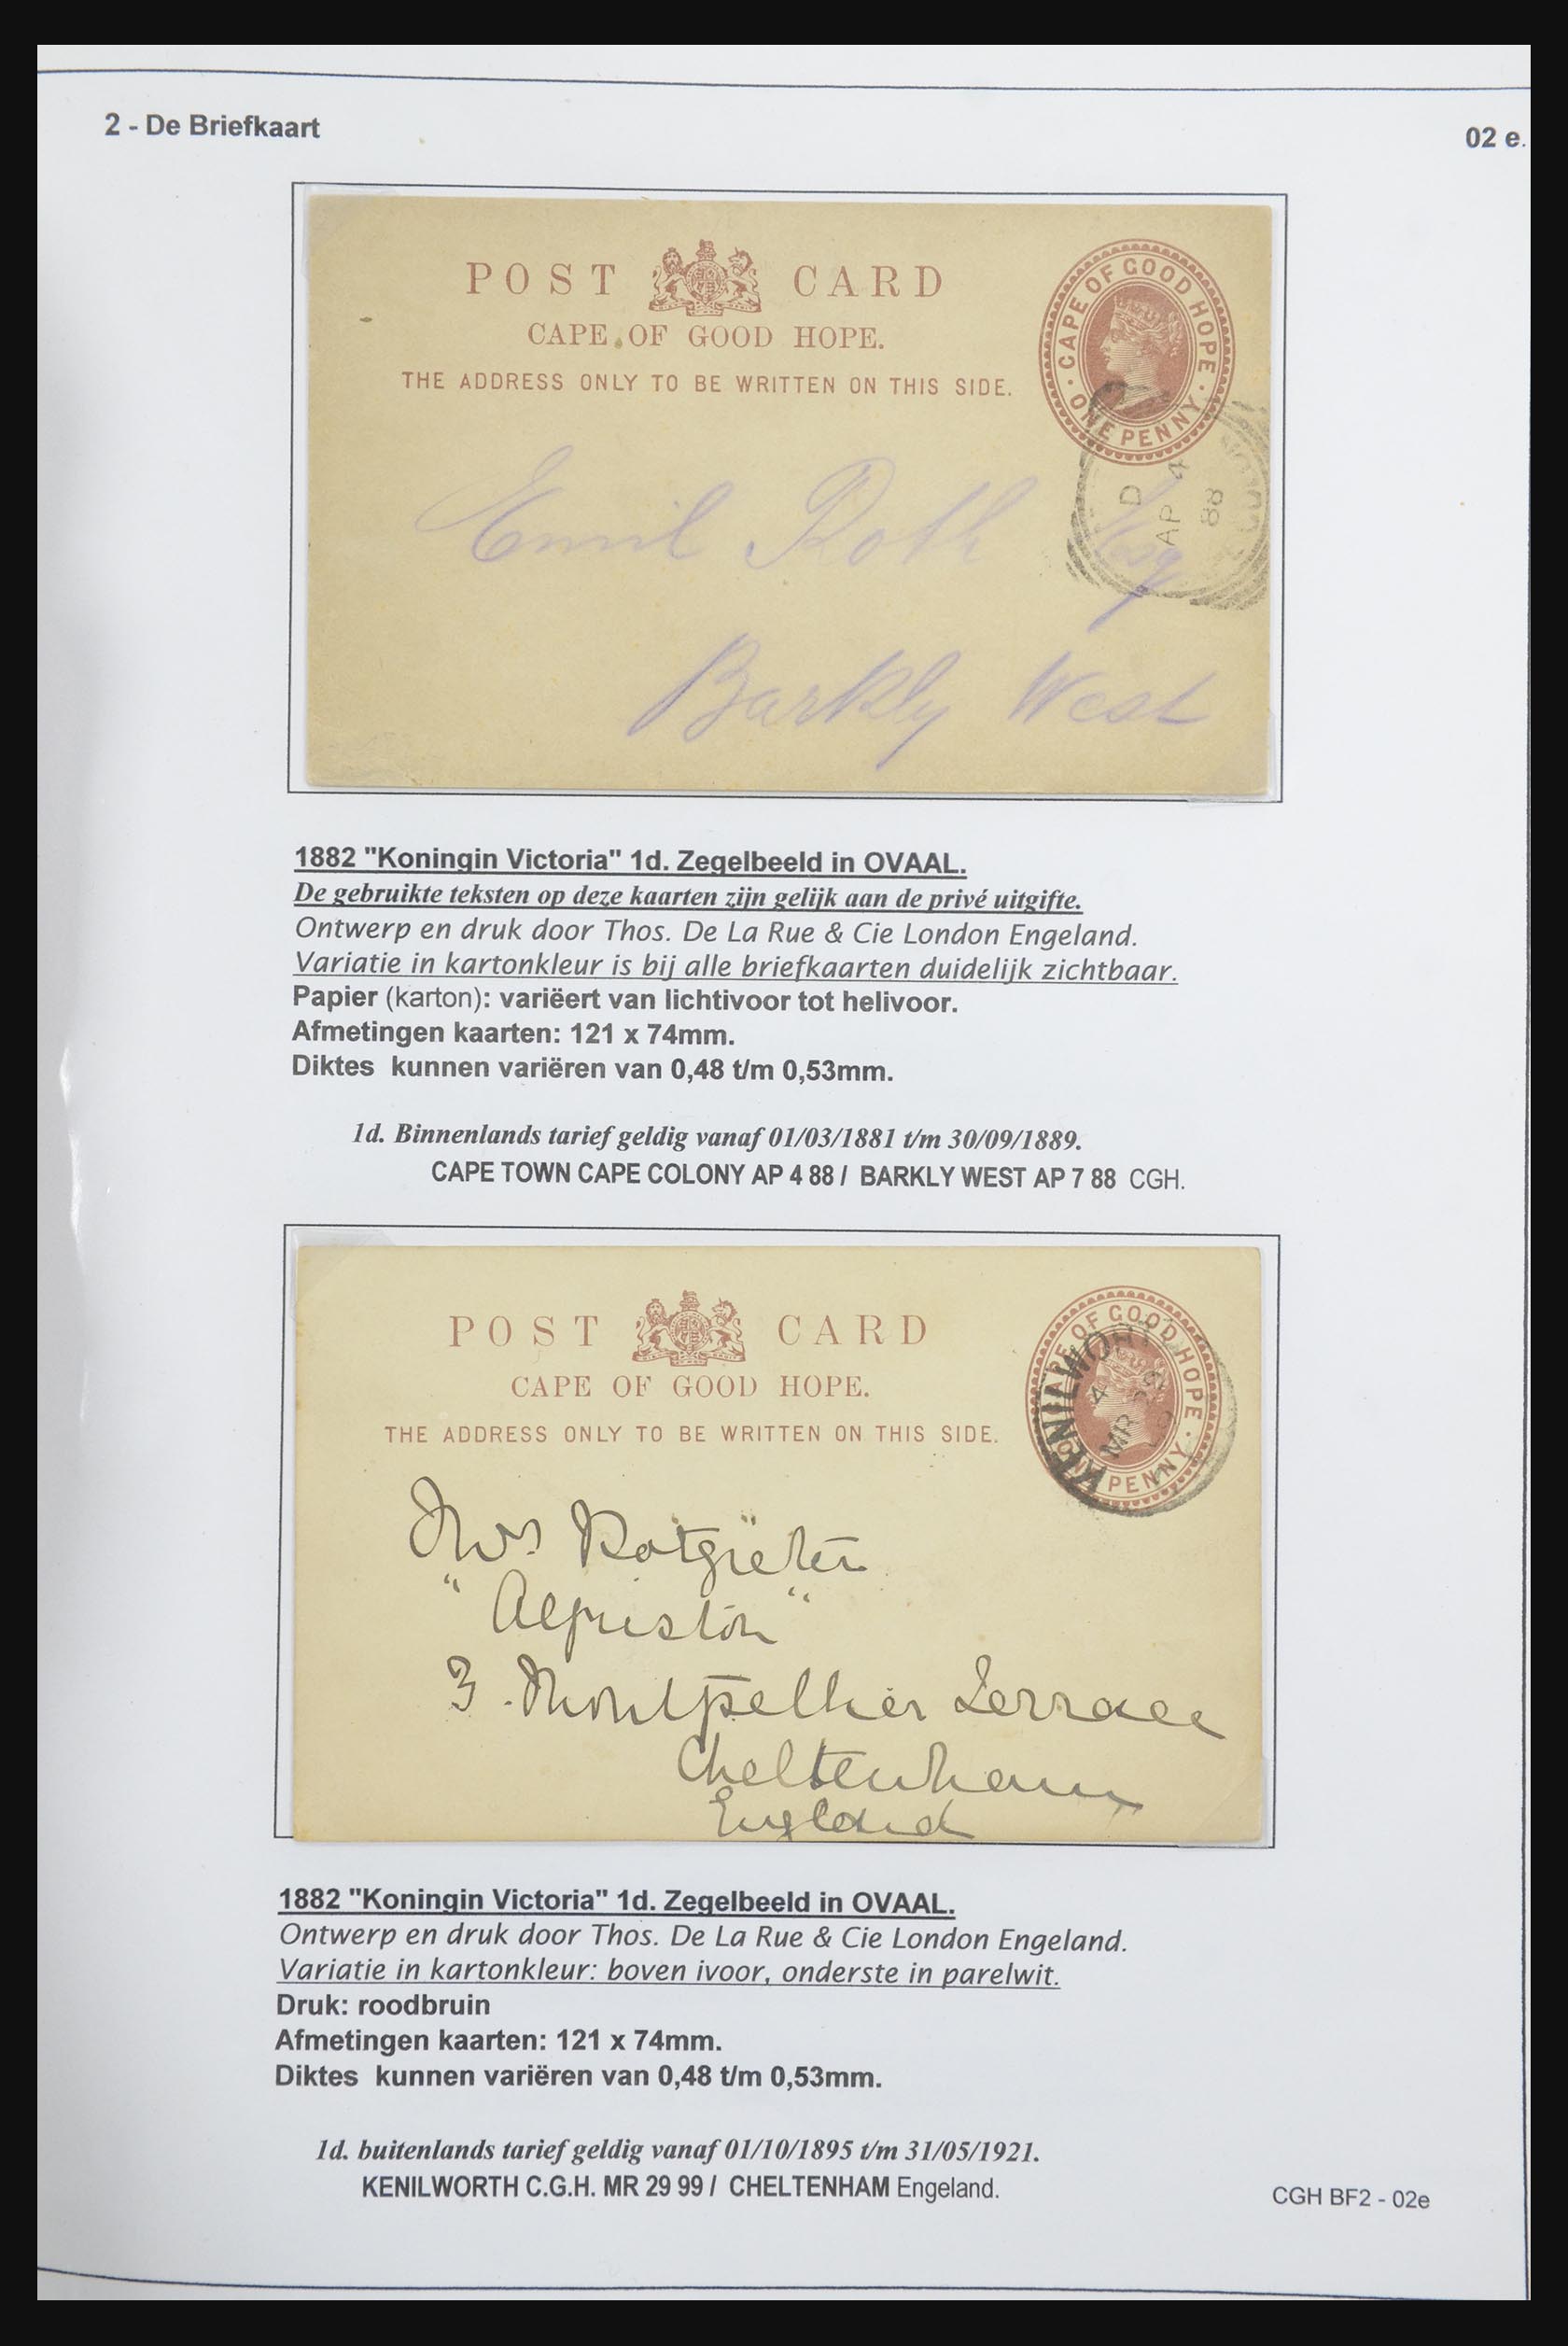 2 - De Briefkaart
02 e.
POST CARD
CAPE OF GOOD HOPE.
THE ADDRESS ONLY TO BE WRITTEN ON THIS SIDE.
CAPE OF GOOD HOPE
ONE PENNY
D
AP 4
88
Emil Roth Esq
Barkly West
1882 "Koningin Victoria" 1d. Zegelbeeld in OVAAL.
De gebruikte teksten op deze kaarten zijn gelijk aan de privé uitgifte.
Ontwerp en druk door Thos. De La Rue & Cie London Engeland.
Variatie in kartonkleur is bij alle briefkaarten duidelijk zichtbaar.
Papier (karton): variëert van lichtivoor tot helivoor.
Afmetingen kaarten: 121 x 74mm.
Diktes kunnen variëren van 0,48 t/m 0,53mm.
1d. Binnenlands tarief geldig vanaf 01/03/1881 t/m 30/09/1889.
CAPE TOWN CAPE COLONY AP 4 88 / BARKLY WEST AP 7 88 CGH.
POST CARD
CAPE OF GOOD HOPE.
THE ADDRESS ONLY TO BE WRITTEN ON THIS SIDE.
CAPE OF GOOD HOPE
ONE PENNY
KENILWORTH
MR 29
Mrs Potgieter
"Alfriston"
3. Montpellier Terrace
Cheltenham
England
1882 "Koningin Victoria" 1d. Zegelbeeld in OVAAL.
Ontwerp en druk door Thos. De La Rue & Cie London Engeland.
Variatie in kartonkleur: boven ivoor, onderste in parelwit.
Druk: roodbruin
Afmetingen kaarten: 121 x 74mm.
Diktes kunnen variëren van 0,48 t/m 0,53mm.
1d. buitenlands tarief geldig vanaf 01/10/1895 t/m 31/05/1921.
KENILWORTH C.G.H. MR 29 99 / CHELTENHAM Engeland.
CGH BF2 - 02e